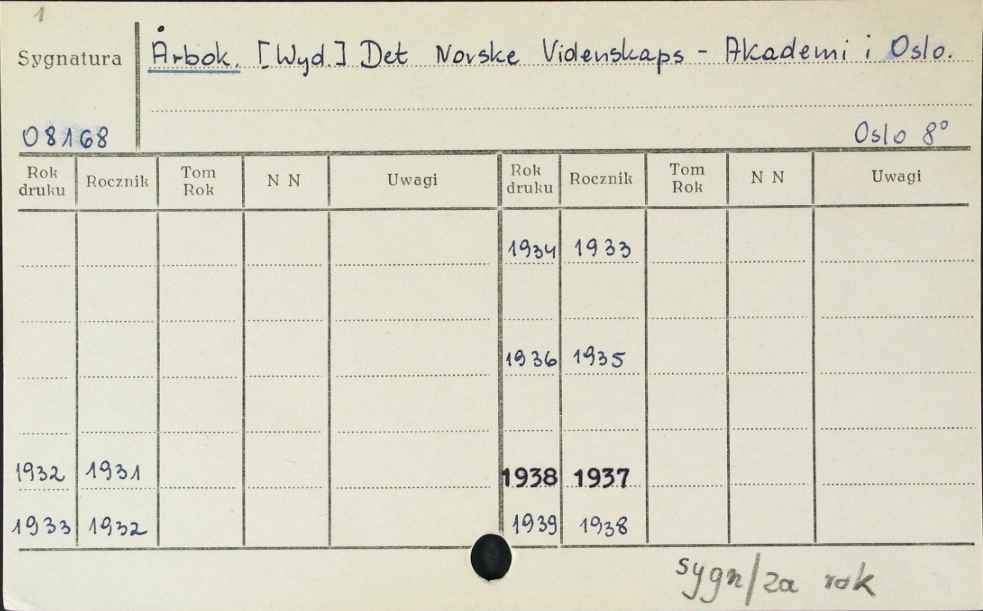 1
Sygnatura
Årbok. [Wyd.] Det Norske Videnskaps - Akademi i Oslo.
08168
Oslo 8°
Rok druku Rocznik Tom Rok N N Uwagi Rok druku Rocznik Tom Rok N N Uwagi
1934 1933
1936 1935
1932 1931 1938 1937
1933 1932 1939 1938
sygn/za rok